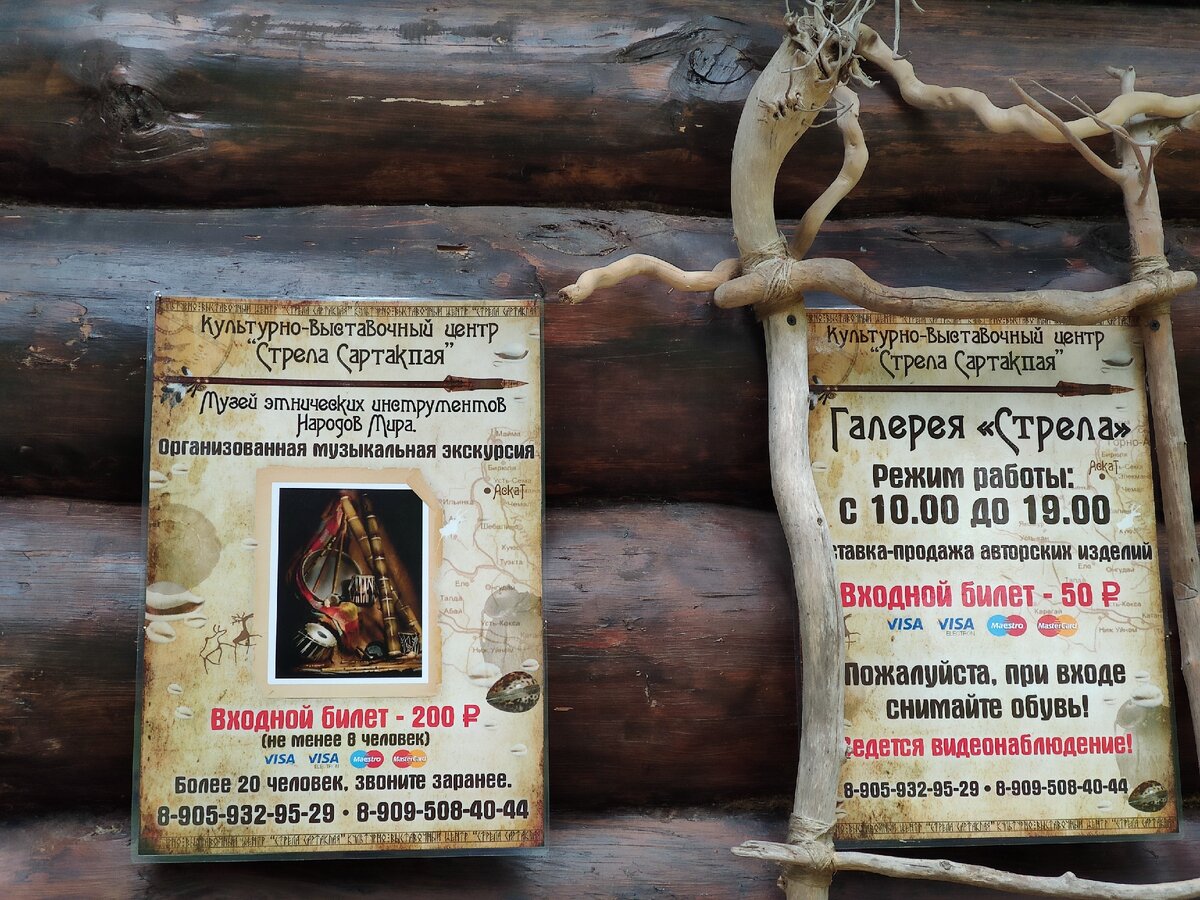 Культурно-выставочный центр
"Стрела Сартакпая"
Музей этнических инструментов
Народов Мира.
Организованная музыкальная экскурсия
Аскат
Входной билет - 200 ₽
(не менее 8 человек)
VISA VISA ELECTRON Maestro MasterCard
Более 20 человек, звоните заранее.
8-905-932-95-29 • 8-909-508-40-44
Культурно-выставочный центр
"Стрела Сартакпая"
Галерея «Стрела»
Режим работы:
Аскат
с 10.00 до 19.00
тавка-продажа авторских изделий
Входной билет - 50 ₽
VISA VISA ELECTRON Maestro MasterCard
Пожалуйста, при входе
снимайте обувь!
Ведется видеонаблюдение!
8-905-932-95-29 • 8-909-508-40-44